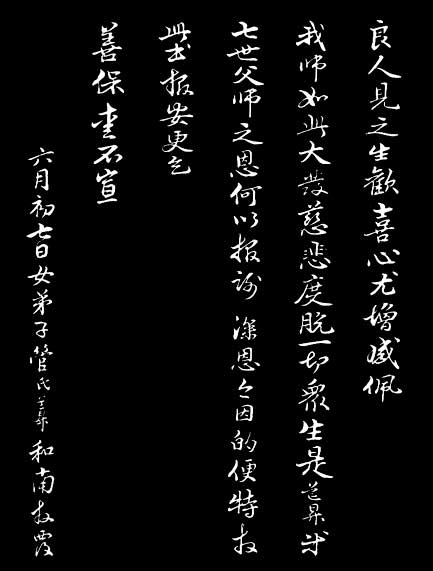 良人見之生歡喜心尤增感佩
我師如此大發慈悲度脫一切衆生是道昇
七世父師之恩何以報謝 深恩今因的便特拜
此書報安更乞
善保重不宣
六月初七日女弟子管氏道昇和南拜覆